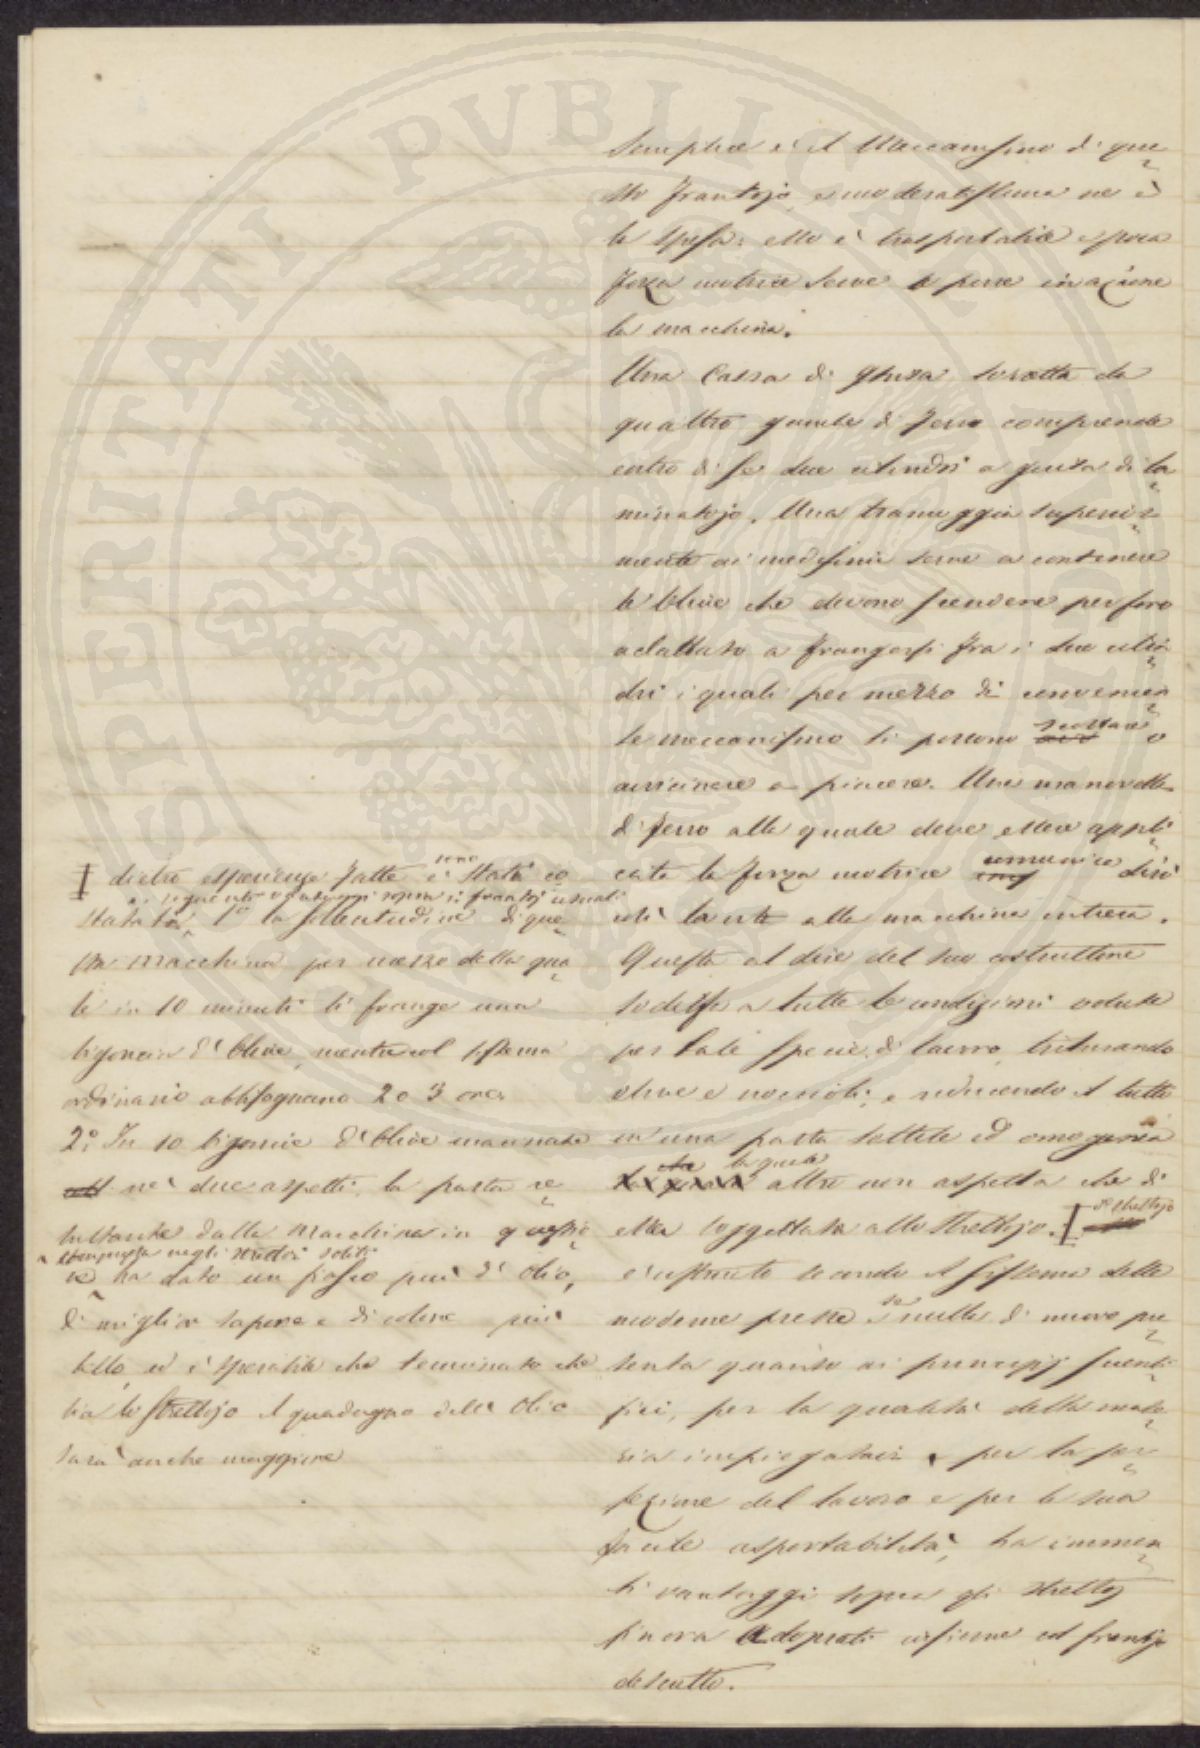 Semplice è il Meccanismo di que
sto frantojo e moderatissima ne è
la spesa: esso è trasportabile e poca
forza motrice serve a porre in azione
la macchina.
Una Cassa di ghisa sorretta da
quattro gambe di ferro comprende
entro di se due cilindri a guisa di la
minatojo. Una tramoggia superior
mente ai medesimi serve a contenere
le Olive che devono scendere per foro
adattato a frangersi fra i due cilin
dri i quali per mezzo di convenien
te meccanismo si possono scostare o
avvicinare a piacere. Una manovella
di ferro alla quale deve essere appli
cata la forza motrice comunica
alla macchina intiera.
Questa al dire del suo costruttore
sodisfa a tutte le condizioni volute
per tale specie di lavoro triturando
olive e noccioli, e riducendo il tutto
in una pasta sottile ed omogenea
la quale altro non aspetta che di
esser soggettata allo strettojo. Lo strettojo
è costruito secondo il sistema delle
moderne presse e se nulla di nuovo pre
senta quanto ai principj scienti
fici, per la qualità della mate
ria impiegataci, per la per
fezione del lavoro e per la sua
facile asportabilità, ha immen
si vantaggi sopra gli strettoj
finora adoprati insieme col frantojo
descritto.
I dietro esperienze fatte sono stati co
i seguenti vantaggi sopra i frantoj usuali
statati 1º la sollecitudine di que
sta macchina per mezzo della qua
le in 10 minuti si frange una
bigoncia d'Olive, mentre col sistema
ordinario abbisognano 2 o 3 ore.
2º. In 10 bigoncie d'Olive macinate
nei due aspetti, la pasta re
sultante dalla Macchina in questio
ne negli strettoi soliti
ha dato un fiasco più di Olio,
di miglior sapore e di colore più
bello, ed è sperabile che terminato che
sia lo strettojo il guadagno dell'Olio
sarà anche maggiore
PERITATI PVBLICAE